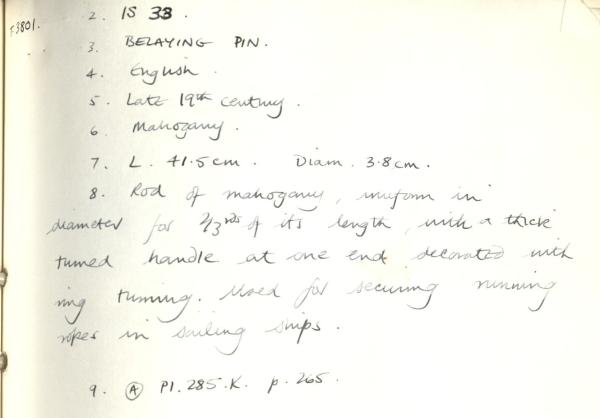 F3801. 2. IS 33.
3. BELAYING PIN.
4. English.
5. Late 19th century.
6. Mahogany.
7. L. 41.5cm. Diam. 3.8cm.
8. Rod of mahogany, uniform in
diameter for 2/3rds of its length, with a thick
turned handle at one end decorated with
ring turning. Used for securing running
ropes in sailing ships.
9. Ⓐ Pl. 285.K. p. 265.